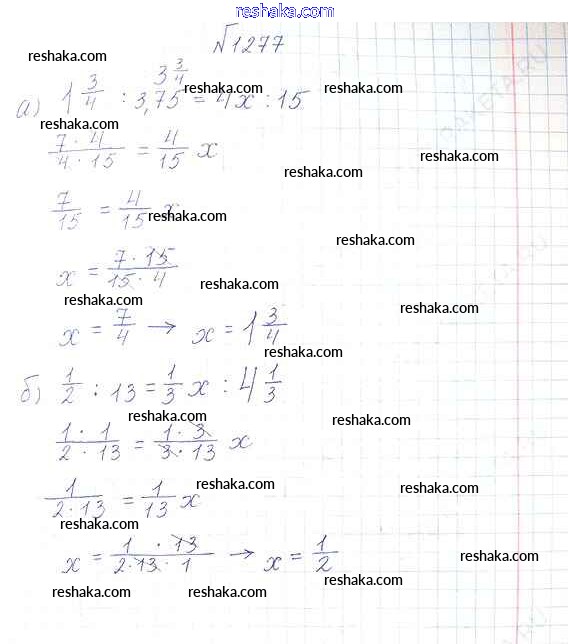 reshaka.com
№1277
reshaka.com
3 3/4
а) 1 3/4 : 3,75 = 4x : 15
reshaka.com reshaka.com reshaka.com
reshaka.com
7 · 4 / 4 · 15 = 4/15 x
reshaka.com
reshaka.com
7/15 = 4/15 x
reshaka.com
reshaka.com
x = 7 · 15 / 15 · 4
reshaka.com
reshaka.com
reshaka.com
x = 7/4 → x = 1 3/4
reshaka.com
б) 1/2 : 13 = 1/3 x : 4 1/3
reshaka.com
reshaka.com
1 · 1 / 2 · 13 = 1 · 3 / 3 · 13 x
reshaka.com
reshaka.com
1 / 2 · 13 = 1/13 x
reshaka.com
x = 1 · 13 / 2 · 13 · 1 → x = 1/2
reshaka.com
reshaka.com
reshaka.com reshaka.com